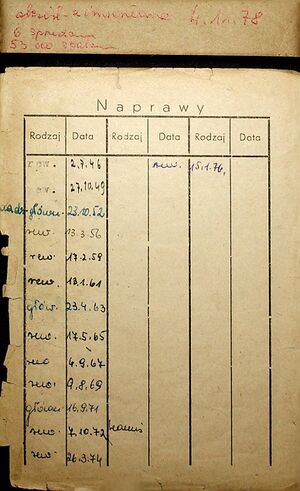 4.1.78
6
53
Naprawy
Rodzaj Data Rodzaj Data Rodzaj Data
rew. 2.7.46 rew. 15.1.76.
rew. 27.10.49
główn. 23.10.52
rew. 13.3.56
rew 17.2.59
rew. 13.1.61
głów. 23.4.63
rew. 17.5.65
rew 4.9.67
rew. 9.8.69
główna 16.9.71
rew 7.10.72
rew 26.3.74